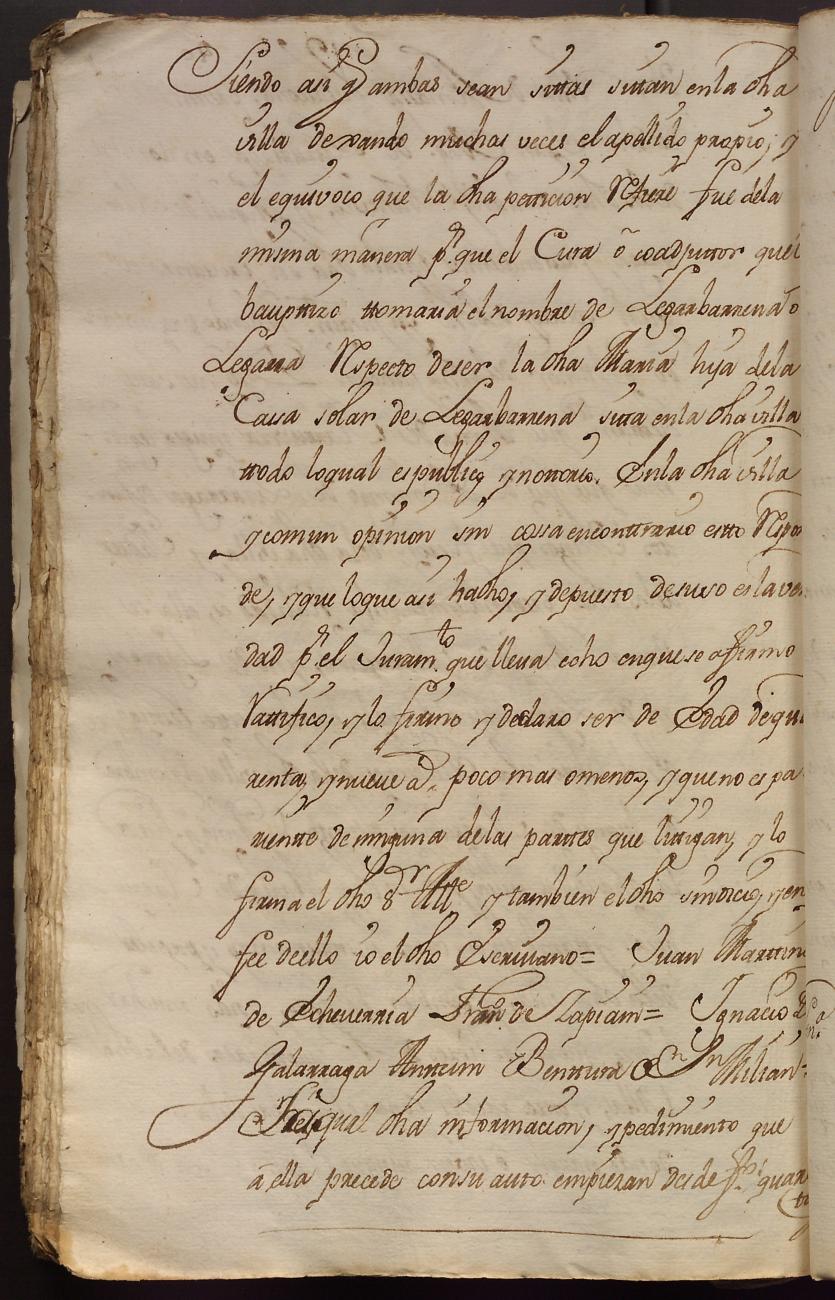 Siendo asi q ambas sean sittas sittan en la dha
villa dexando muchas veces el apellido propio, y
el equivoco que la dha peticion Refiere fue dela
misma manera pr. que el Cura o coadjuttor que
bauptizo ttomaria el nombre de Legarbarrena o
Legarra Respecto deser la dha Maria hija dela
Cassa solar de Legarbarrena sitta en la dha villa
ttodo loqual es publico y nottorio. Enla dha villa
y comun opinion sin cossa encontrario estto Respon
de, y que loque asi ha dho, y depuesto desuso es la ver
dad pr. el Juramto. que lleva echo enque se affirmo
Rattifico, y lo firmo y declaro ser de Edad de qua
renta, y nueve as. poco mas omenos, y que no es pa
riente de ninguna delas parttes que littigan, y lo
firma el dho Sr Allte y tambien el dho sindico, y en
fee deello io el dho Escrivano= Juan Marttin
de Echeverria Franco. de Zapiain= Ignacio de
Galarraga Anttemi Benttura de Sn Millan=
qual dha informacion, y pedimiento que
a ella precede con su auto empiezan desde fo. quar